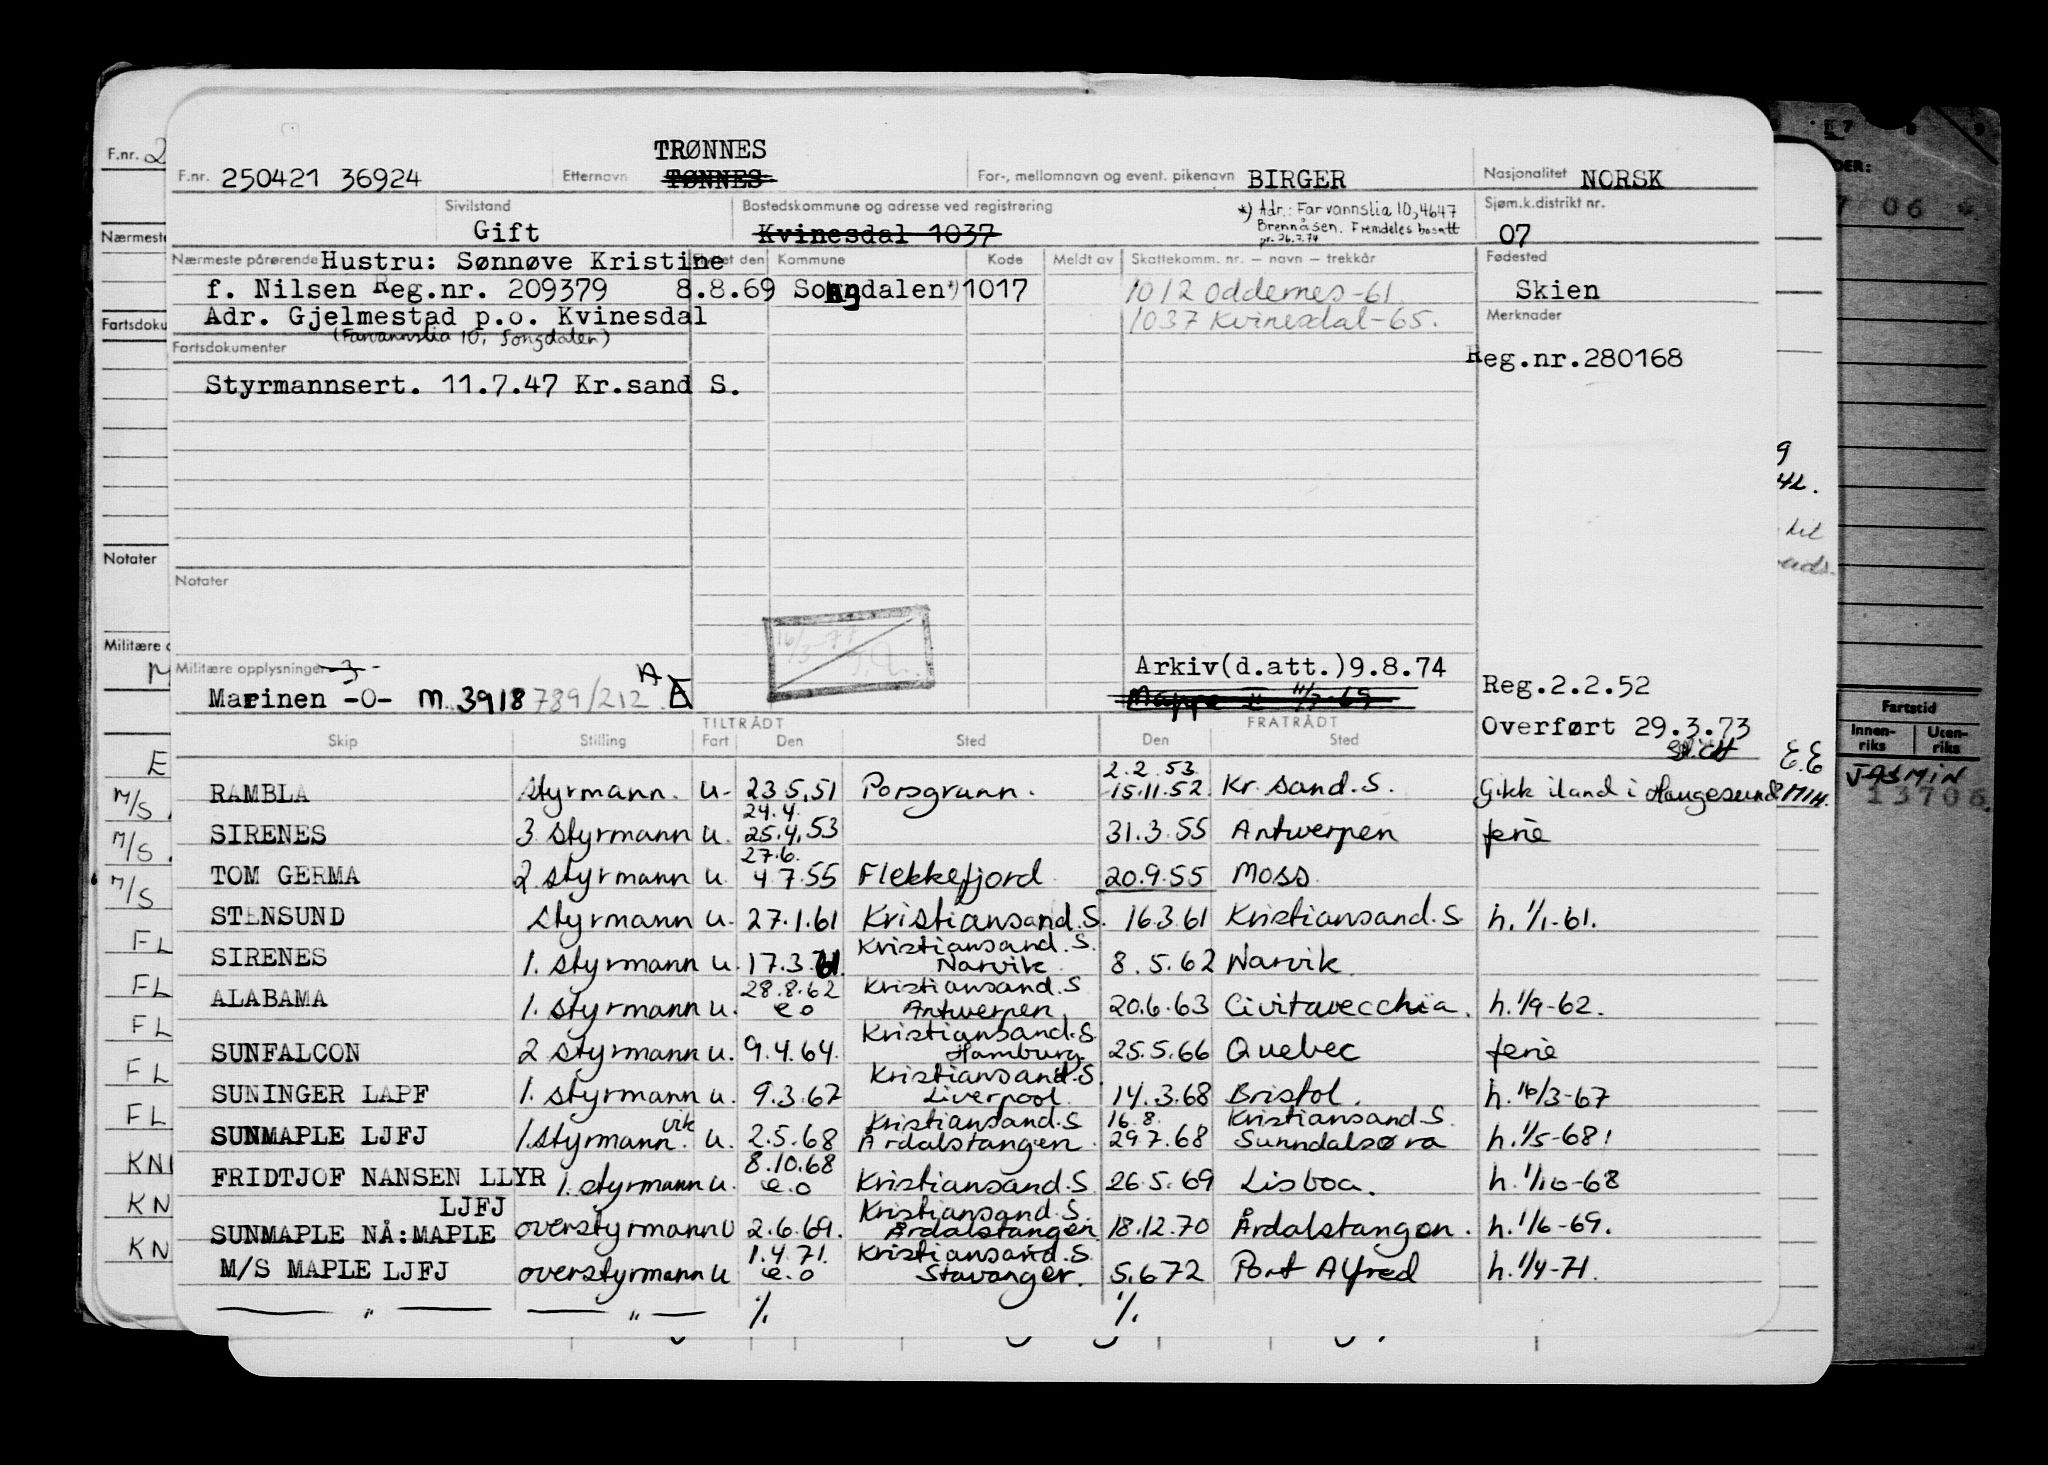 TRØNNES
F.nr. 250421 36924 Etternavn TØNNES For-, mellomnavn og event. pikenavn BIRGER Nasjonalitet NORSK
Sivilstand Bostedskommune og adresse ved registrering *) Adr.: Farvannslia 10, 4647 Sjøm.k.distrikt nr.
Gift Kvinesdal 1037 Brennåsen. Fremdeles bosatt 07
pr. 26.7.74
Nærmeste pårørende Hustru: Sønnøve Kristine Flyttet den Kommune Kode Meldt av Skattekomm. nr. – navn – trekkår Fødested
f. Nilsen Reg.nr. 209379 8.8.69 Songdalen*) 1017 1012 Oddernes-61. Skien
Adr. Gjelmestad p.o. Kvinesdal 1037 Kvinesdal-65. Merknader
(Farvannslia 10, Songdalen)
Fartsdokumenter Reg.nr.280168
Styrmannsert. 11.7.47 Kr.sand S.
Notater
16/3-77
Militære opplysninger -3- Arkiv(d.att.)9.8.74
Marinen -O- M. 3918 789/212 A Reg.2.2.52
Mappe 11/7-69
Overført 29.3.73
TILTRÅDT FRATRÅDT
Skip Stilling Fart Den Sted Den Sted
2.2.53
RAMBLA styrmann. u. 23.5.51 Porsgrunn. 15.11.52 Kr. sand. S. Gikk iland i Haugesund
24.4.
SIRENES 3 styrmann u. 25.4.53 31.3.55 Antwerpen ferie
27.6.
TOM GERMA 2 styrmann u. 4.7.55 Flekkefjord 20.9.55 Moss
STENSUND styrmann u. 27.1.61 Kristiansand.S. 16.3.61 Kristiansand.S h. 1/1-61.
Kristiansand.S.
SIRENES 1. styrmann u. 17.3.61. Narvik 8.5.62 Narvik
28.8.62 Kristiansand.S
ALABAMA 1. styrmann u. e.o Antwerpen 20.6.63 Civitavecchia. h. 1/9-62.
Kristiansand.S
SUNFALCON 2 styrmann u. 9.4.64. Hamburg. 25.5.66 Quebec ferie
Kristiansand.S.
SUNINGER LAPF 1. styrmann u. 9.3.67 Liverpool. 14.3.68 Bristol. h. 16/3-67
vik Kristiansand.S 16.8. Kristiansand.S.
SUNMAPLE LJFJ 1.styrmann. u. 2.5.68 Årdalstangen. 29.7.68 Sunndalsøra h. 1/5-68!
8.10.68
FRIDTJOF NANSEN LLYR 1. styrmann u. e.o Kristiansand.S. 26.5.69 Lisboa. h. 1/10-68
LJFJ Kristiansand.S.
SUNMAPLE NÅ:MAPLE overstyrmann u 2.6.69. Årdalstangen 18.12.70 Årdalstangen. h. 1/6-69.
1.4.71. Kristiansand.S
M/S MAPLE LJFJ overstyrmann u e.o Stavanger. 5.6.72 Port Alfred h. 1/4-71.
— " — — " — %. %.
F.nr. 2
Nærmeste
Fartsdoku
Notater
Militære o
M
E
M/S
M/S
M/S
FL
FL
FL
FL
FL
KN
KN
KN
E.E
DER:
06
Fartstid
Innen-riks Uten-riks
JASMIN
13706